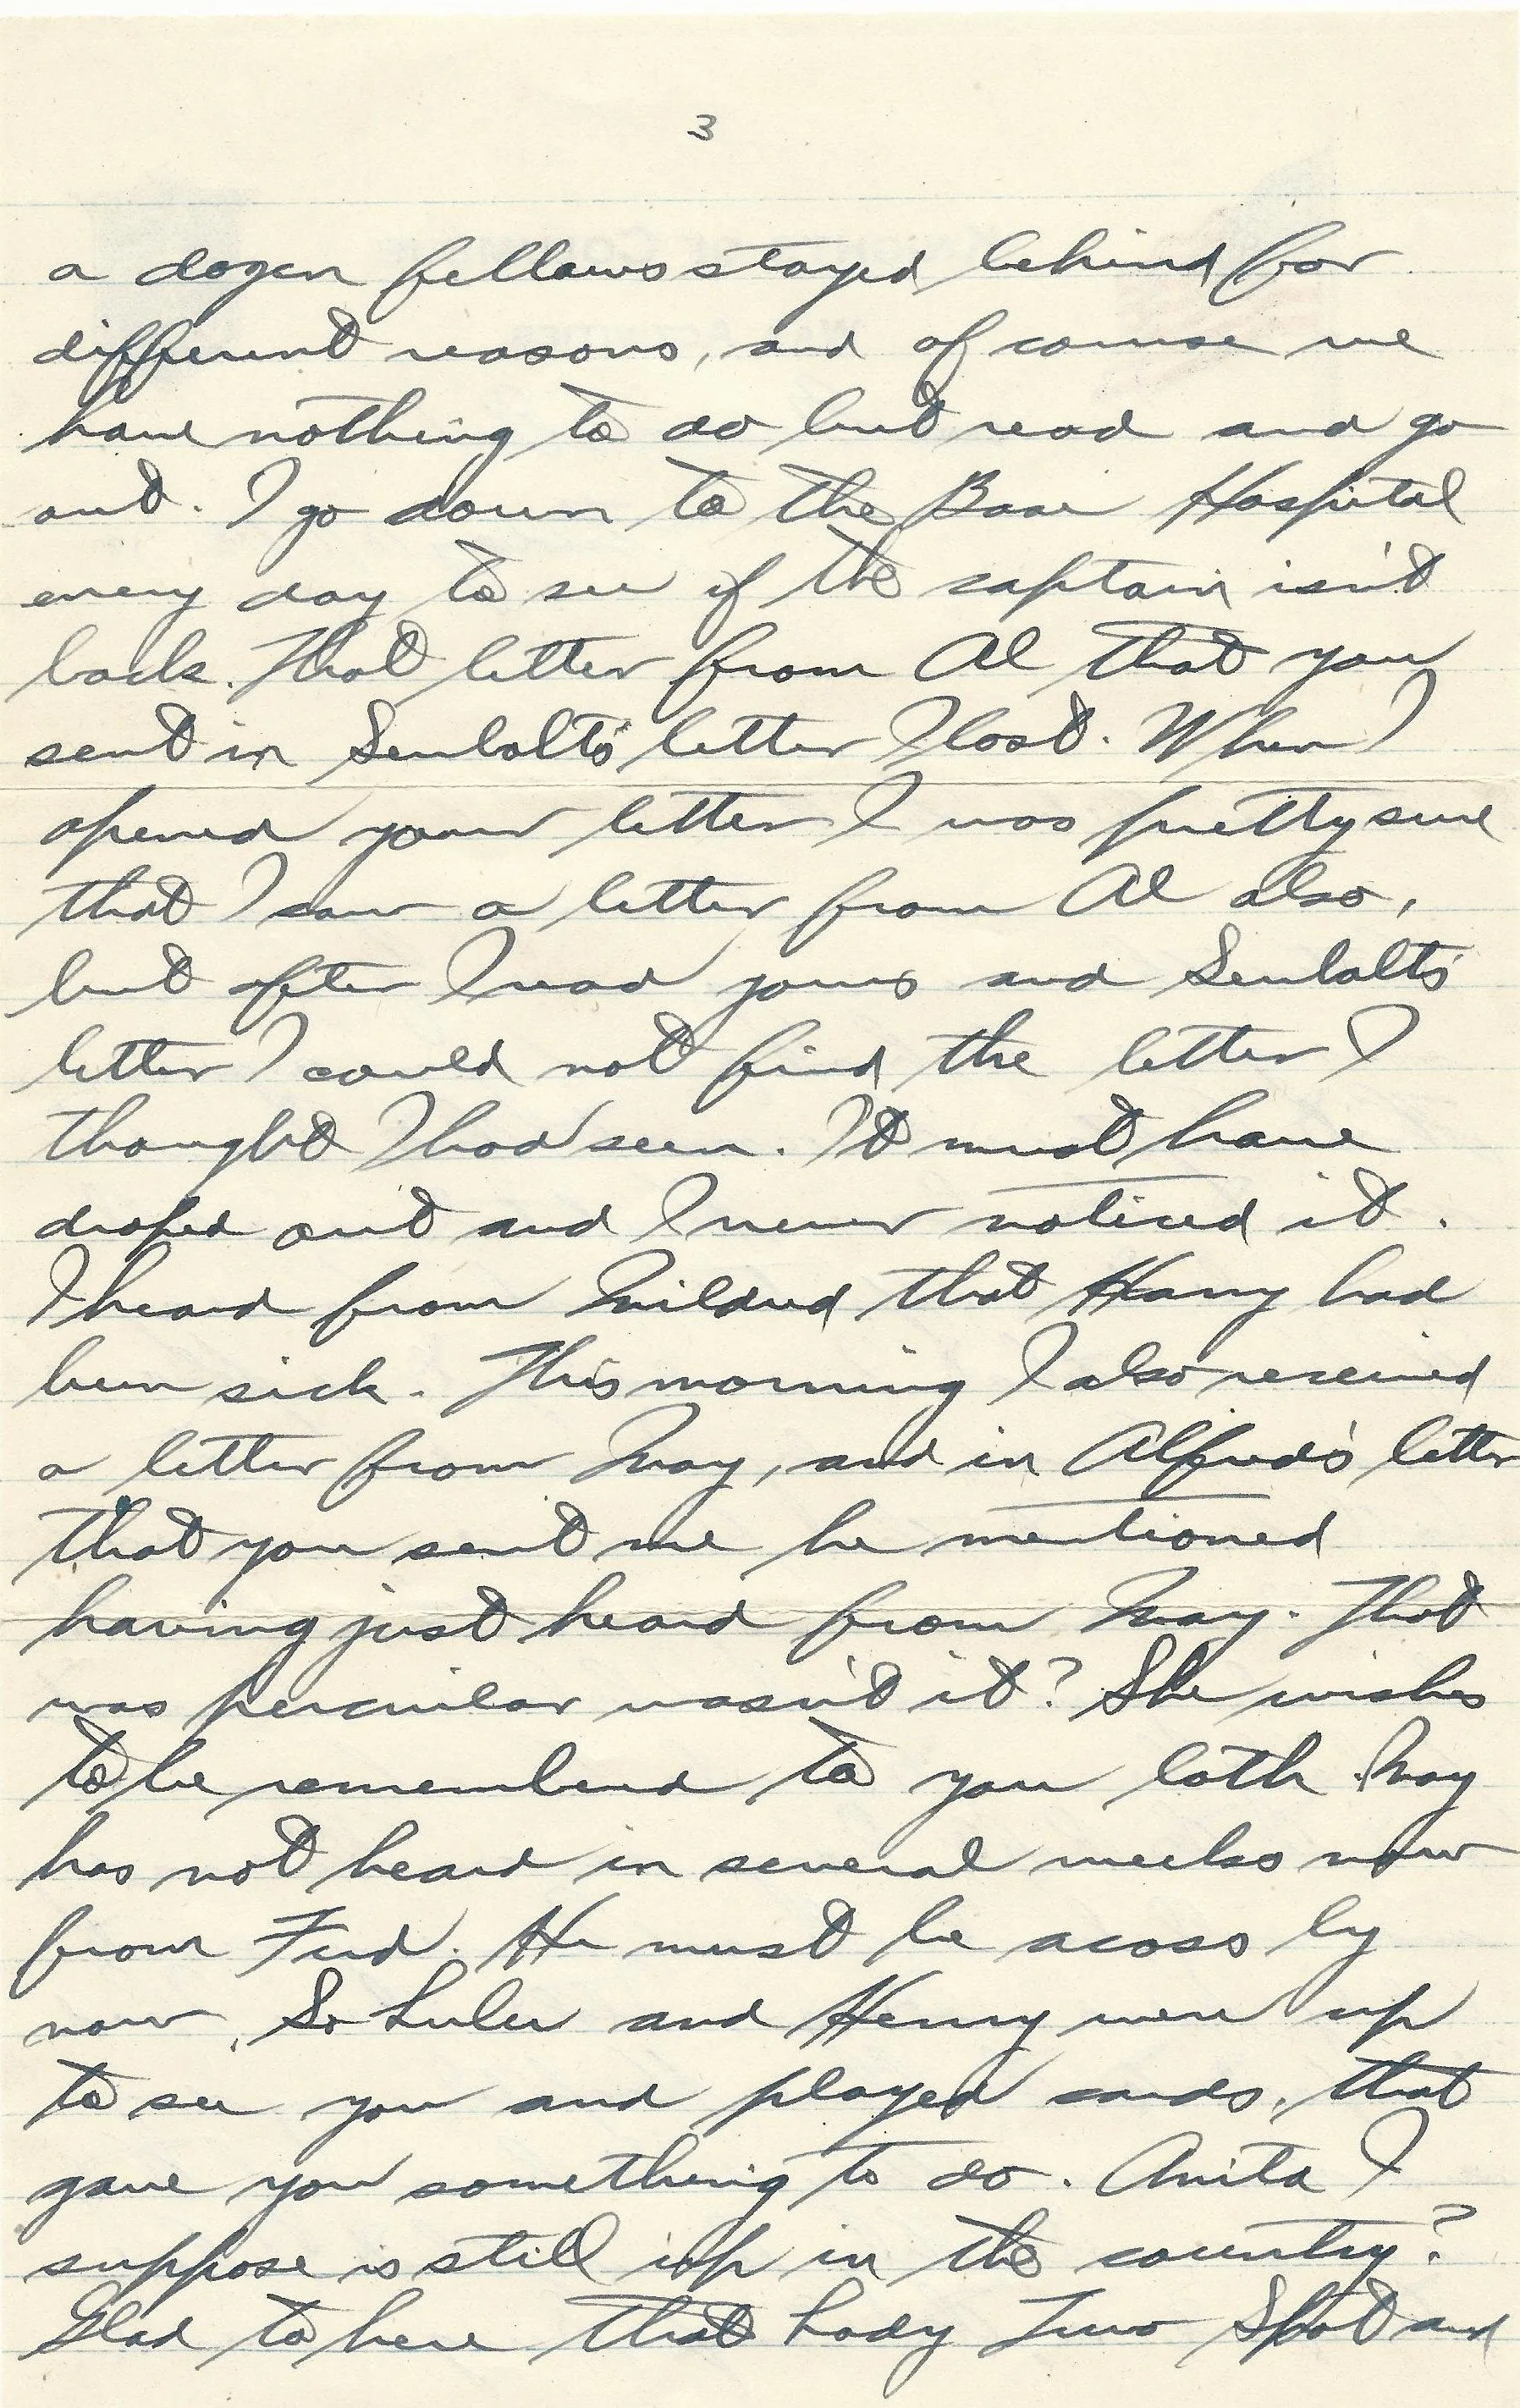 3
a dozen fellows stayed behind for
different reasons, and of course we
have nothing to do but read and go
out. I go down to the Base Hospital
every day to see if the captain isn't
back. That letter from Al that you
sent in letter I lost. When I
opened your letter I was pretty sure
that I saw a letter from Al also,
but after I read yours and
letter I could not find the letter I
thought I had seen. It must have
droped out and I never noticed it.
I heard from Mildred that Harry had
been sick. This morning I also received
a letter from May, and in Alfred's letter
that you sent me he mentioned
having just heard from May. That
was percuilar wasn't it? She wishes
to be remembered to you both. May
has not heard in several weeks now
from Fred. He must be acoss by
now. So and Henry were up
to see you and played cards, that
gave you something to do. Anita I
suppose is still up in the country?
Glad to here that Lady Two Spot and